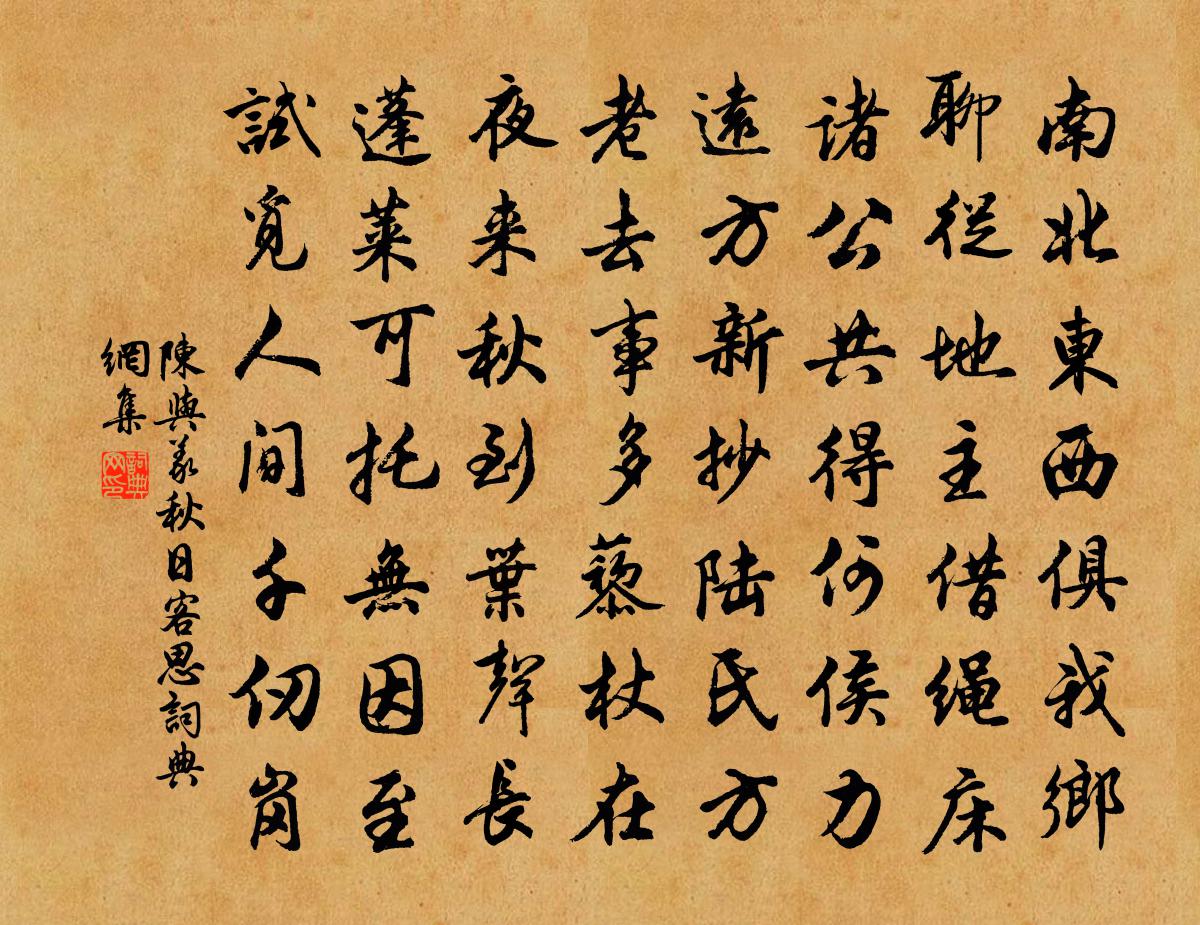 南北東西俱我鄉
聊從地主借绳床
諸公共得何侯力
遠方新抄陆氏方
老去事多藜杖在
夜来秋到葉聲長
蓬萊可托無因至
試覓人间千仞崗
陳與義秋日客思詞典
網集
詞典
网印